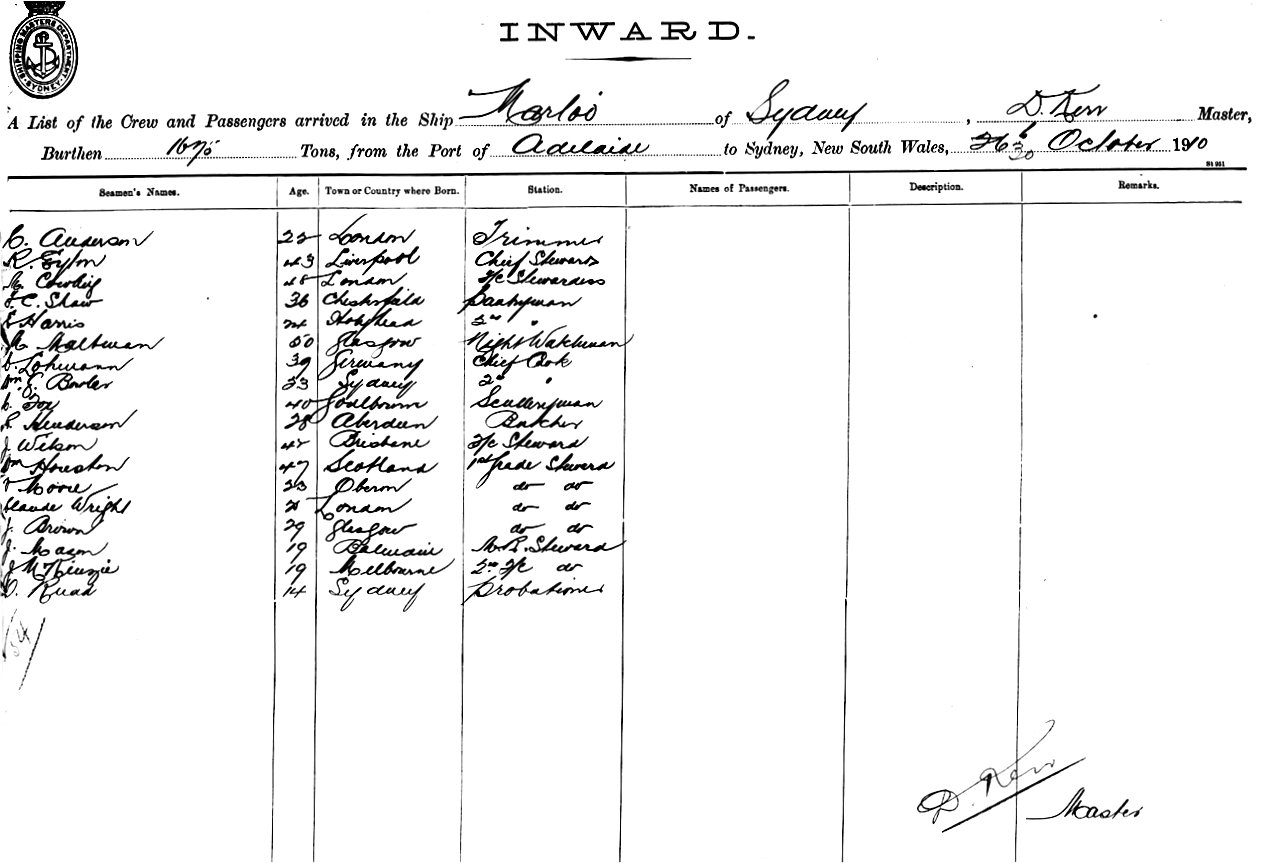 SHIPPING MASTERS DEPARTMENT SYDNEY
INWARD.
A List of the Crew and Passengers arrived in the Ship Marloo of Sydney, D. Kerr Master,
Burthen 1675 Tons, from the Port of Adelaide to Sydney, New South Wales, October 1910
Seamen's Names. Age. Town or Country where Born. Station. Names of Passengers. Description. Remarks.
C. Anderson 22 London Trimmer
R. Eyton 43 Liverpool Chief Steward
M. 48 London F/c Stewardess
F. C. Shaw 36 Chesterfield Pantryman
E Harris 24 Holyhead 2nd "
M. Maltman 50 Glasgow Night Watchman
Lohmann 39 Germany Chief Cook
Wm. J. Bowler 23 Sydney 2nd "
C. Fox 40 Goulbourn Sculleryman
Henderson 28 Aberdeen Butcher
J Wilson 42 Brisbane F/c Steward
Wm Houston 47 Scotland 1st Grade Steward
Moore 23 Oberon do do
Claude Wright 21 London do do
J. Brown 29 Glasgow do do
J. Mason 19 Balmain M. R. Steward
J McKenzie 19 Melbourne 2nd F/c do
14 Sydney Probationer
54
D. Kerr
Master